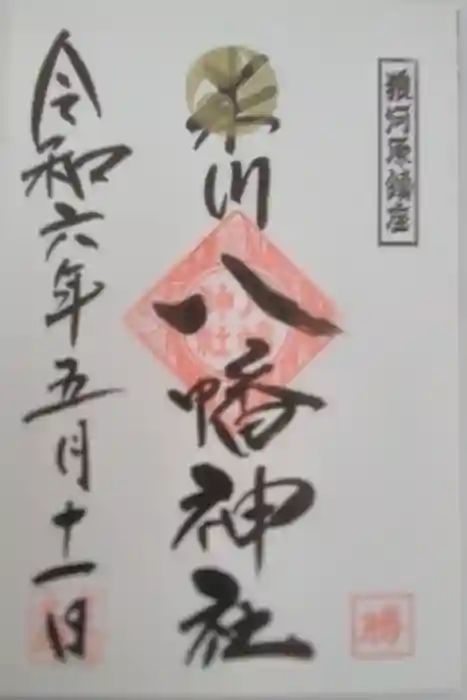 狼河原鎮座
米川
八幡神社
令和六年五月十一日